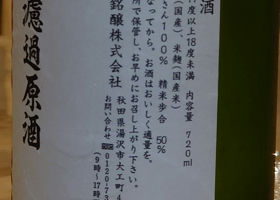 酒
度以上18度未満 内容量 720ml
(国産)、米麹(国産米)
さん100% 精米歩合 50%
なってから。お酒はおいしく適量を。
所で保管し、お早めにお召し上がり下さい。
銘醸株式会社
秋田県湯沢市大工町4
お問い合わせ 0120-73
(9時~17時
濾過原酒